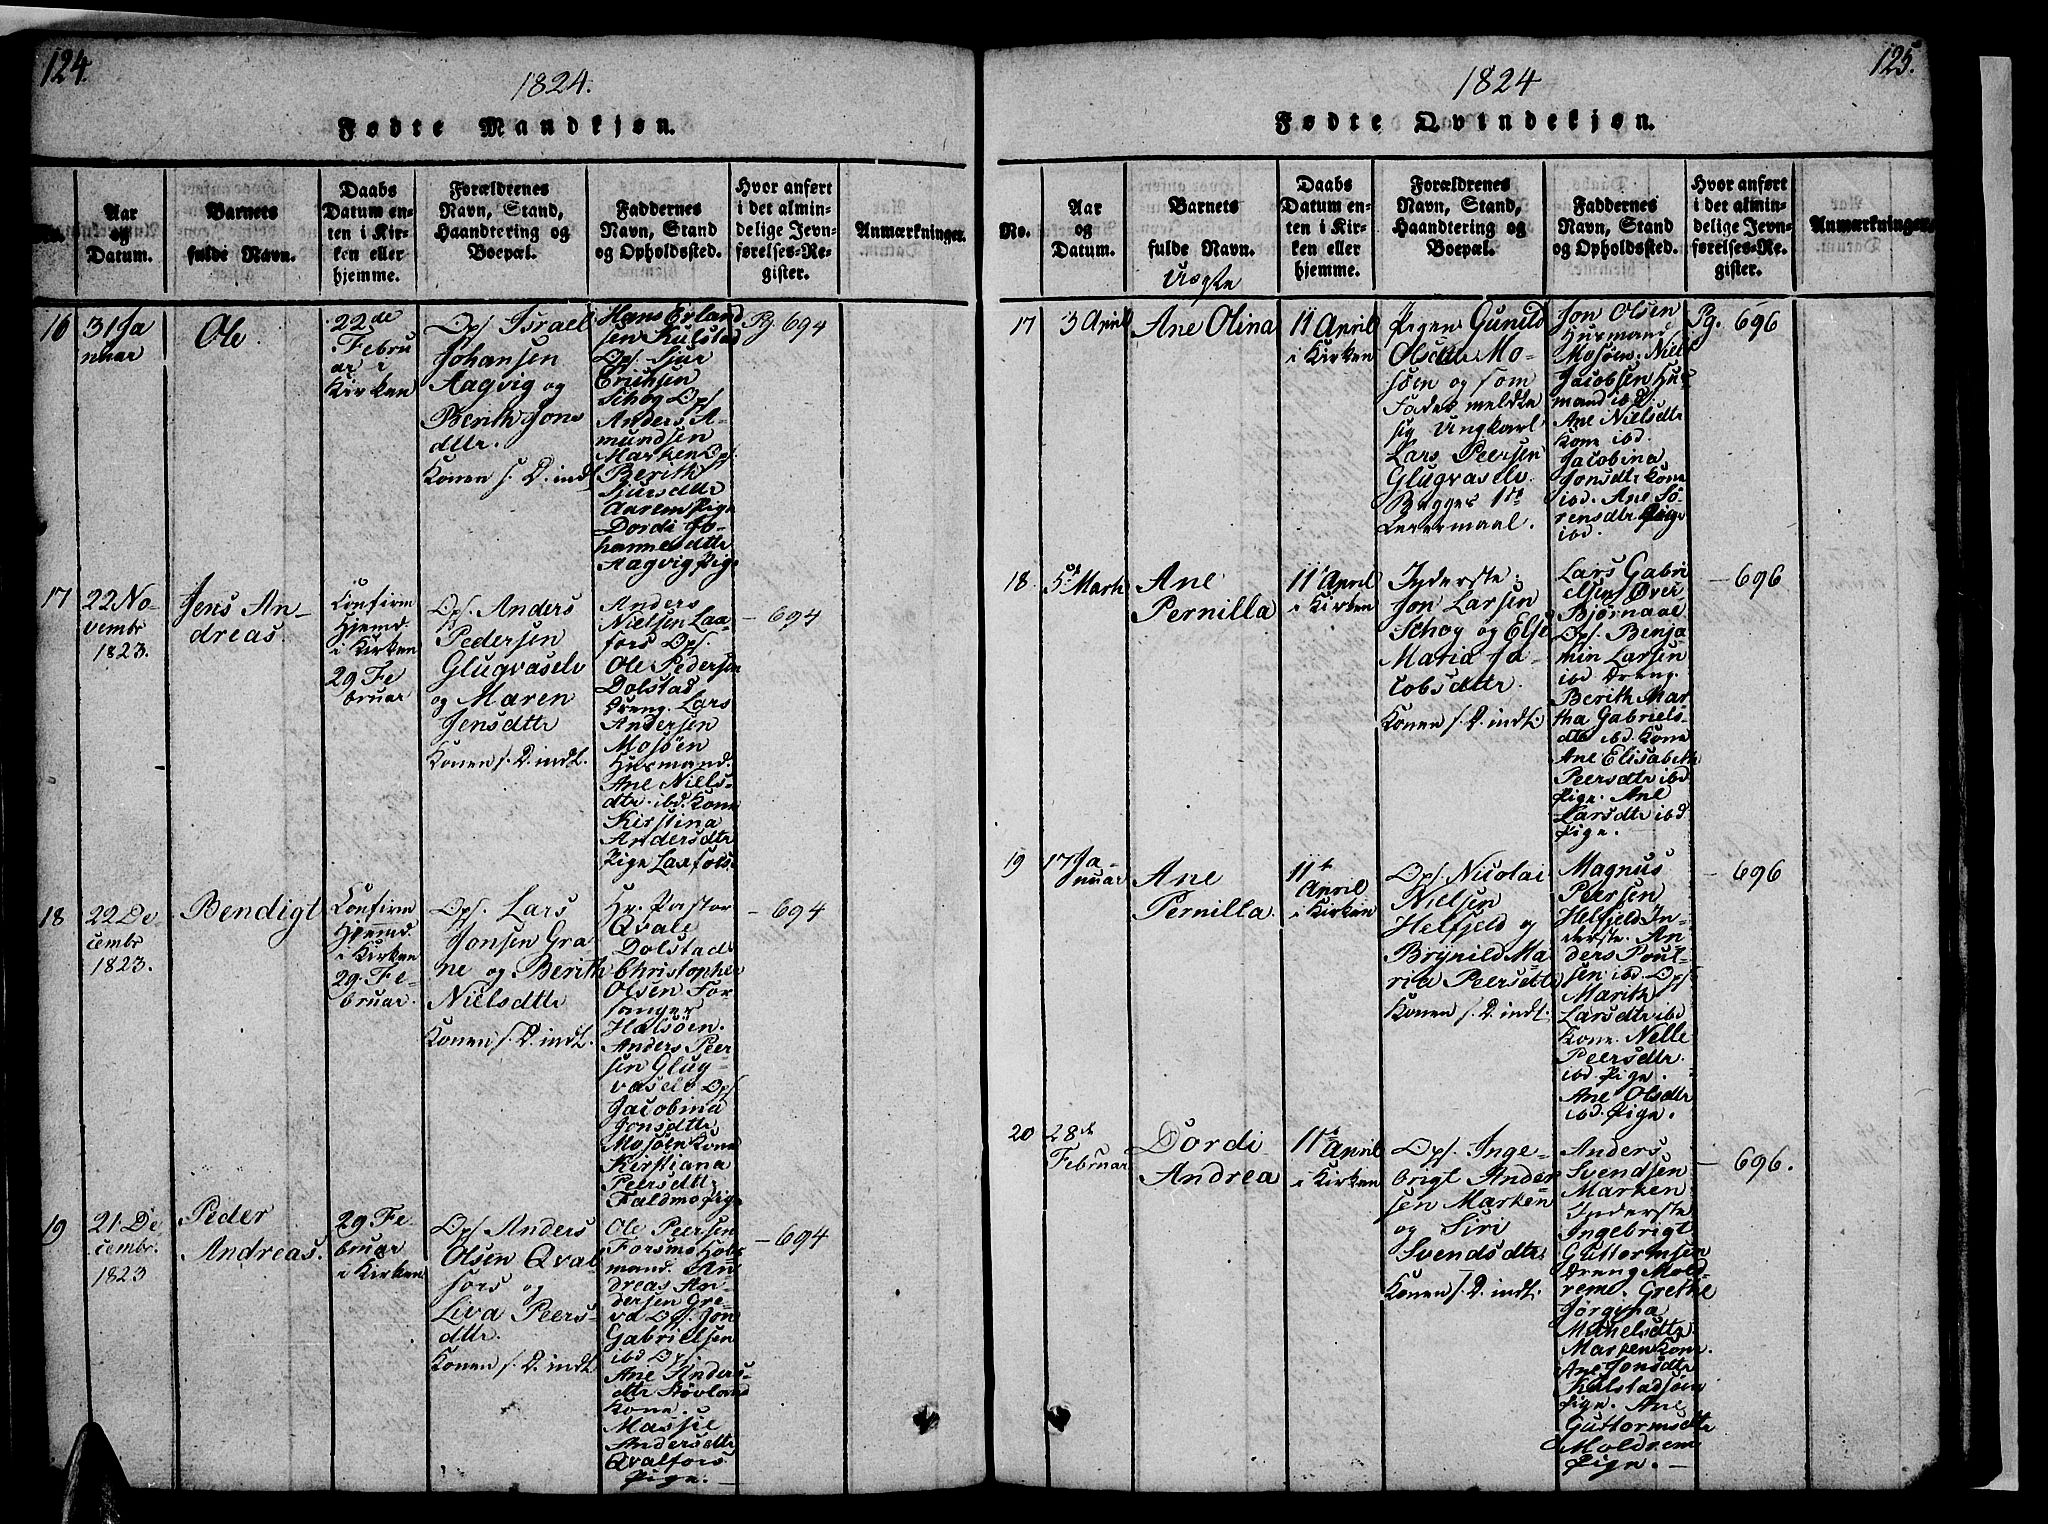 124.
1824.
Fødte Mandkjøn.
No.
Aar
og
Datum.
Barnets
fulde Navn.
Daabs
Datum en-
ten i Kir-
ken eller
hjemme.
Forældrenes
Navn, Stand,
Haandtering og
Boepæl.
Faddernes
Navn, Stand
og Opholdssted.
Hvor anført
i det almin-
delige Jevn-
førelses-Re-
gister.
Anmærkninger.
16
31 Ja
nuar
Ole
22de
Febru
ar i
Kirken
Ops. Israel
Johansen
Aagvig og
Berith Jons
dttr.
Konen s. D. indl.
Hans Erland
sen Kulstad
Ops. Sjur
Erichsen
Schog Ops.
Anders A-
mundsen
Marken Ops.
Berith
Sjursdttr
Aarem Pige
Dordi Jo-
hannesdttr
Aagvig Pige
Pg. 694
17
22 No-
vembr
1823.
Jens An-
dreas.
Confirm
Hjemd.
i Kirken
29 Fe
bruar
Ops. Anders
Pedersen
Glugvaselv
og Maren
Jensdttr
Konen s. D. indl.
Anders
Nielsen Laa-
fors Ops.
Ole Pedersen
Dolstad
Dreng. Lars
Andersen
Mosøen
Husmand.
Ane Niels-
dttr. ibd. Kone
Kirstina
Andersdttr
Pige Laafors.
- 694
18
22 De-
cembr
1823.
Bendigt
Confirm
Hjemd.
i Kirken
29. Fe-
bruar.
Ops. Lars
Jonsen Gra-
ne og Berith
Nielsdttr
Konen s. D. indl.
Hr. Pastor
Qvale
Dolstad
Christopher
Olsen For
sanger
Halsøen.
Anders Peer-
sen Glug-
vaselv Ops.
Jacobina
Jonsdttr
Mosøen Kone
Kirstiana
Peersdttr
Faldmo Pige
- 694
19
21. De
cembr.
1823
Peder
Andreas.
29 Fe-
bruar
i Kirken
Ops. Anders
Olsen Qval-
fors og
Liva Peers-
dttr.
Konen s. D. indl.
Ole Peersen
Forsmo Hus
mand. An
dreas An-
dersen Gre-
va Ops. Jon
Gabrielsen
ibd Ops.
Ane Anders-
dttr Støvland
Kone.
Massie
Andersdttr
Qvalfors
Pige.
- 694
125.
1824
Fødte Qvindekjøn.
No.
Aar
og
Datum.
Barnets
fulde Navn.
Uægte
Daabs
Datum en-
ten i Kir-
ken eller
hjemme.
Forældrenes
Navn, Stand,
Haandtering og
Boepæl.
Faddernes
Navn, Stand
og Opholdssted.
Hvor anført
i det almin-
delige Jevn-
førelses-Re-
gister.
Anmærkninger.
17
3 April
Ane Olina
11 April
i Kirken
Pigen Gunild
Olsdttr Mo-
søen og som
Fader meldte
sig Ungkarl
Lars Peersen
Glugvaselv
Begges 1ste
Leiermaal.
Jon Olsen
Husmand
Mosøen. Niels
Jacobsen Hus
mand ibd.
Ane Nielsdttr
Kone ibd.
Jacobina
Jonsdttr Kone
ibd. Ane Sø-
rensdttr Pige
ibd.
Pg. 696
18.
5te Marts
Ane
Pernilla
11te April
i Kirken
Inderste
Jon Larsen
Schog og Else
Maria Ja-
cobsdttr.
Konen s. D. indl.
Lars Gabri
elsen Over
Bjørnaae
Ops. Benja
min Larsen
ibd Dreng.
Berith Mar
tha Gabriels-
dttr ibd. Kone
Ane Elisabeth
Peersdttr ibd
Pige. Ane
Larsdttr ibd.
Pige.
- 696
19
17 Ja-
nuar
Ane
Pernilla
11te
April
i Kirken
Ops. Nicolai
Nielsen
Helfjeld og
Brynild Ma-
ria Peersdttr
Konen s. D. indl.
Magnus
Peersen
Helfjeld In-
derste. An-
ders Poul-
sen ibd. Ops.
Marith
Larsdttr ibd
Kone. Nelle
Peersdttr.
ibd. Pige.
Ane Olsdttr
ibd. Pige.
- 696
20
28de
Februar
Dordi
Andrea
11te April
i Kirken
Ops. Inge-
brigt Ander
sen Marken
og Siri
Svendsdttr
Konen s. D. indl.
Anders
Svendsen
Marken
Inderste
Ingebrigt
Guttormsen
Dreng Mold-
rem. Grethe
Jørgina
Michelsdttr.
Marken Kone.
Ane Jonsdttr
Kulstadsøen
Pige. Ane
Guttormsdttr
Moldrem
Pige.
- 696.